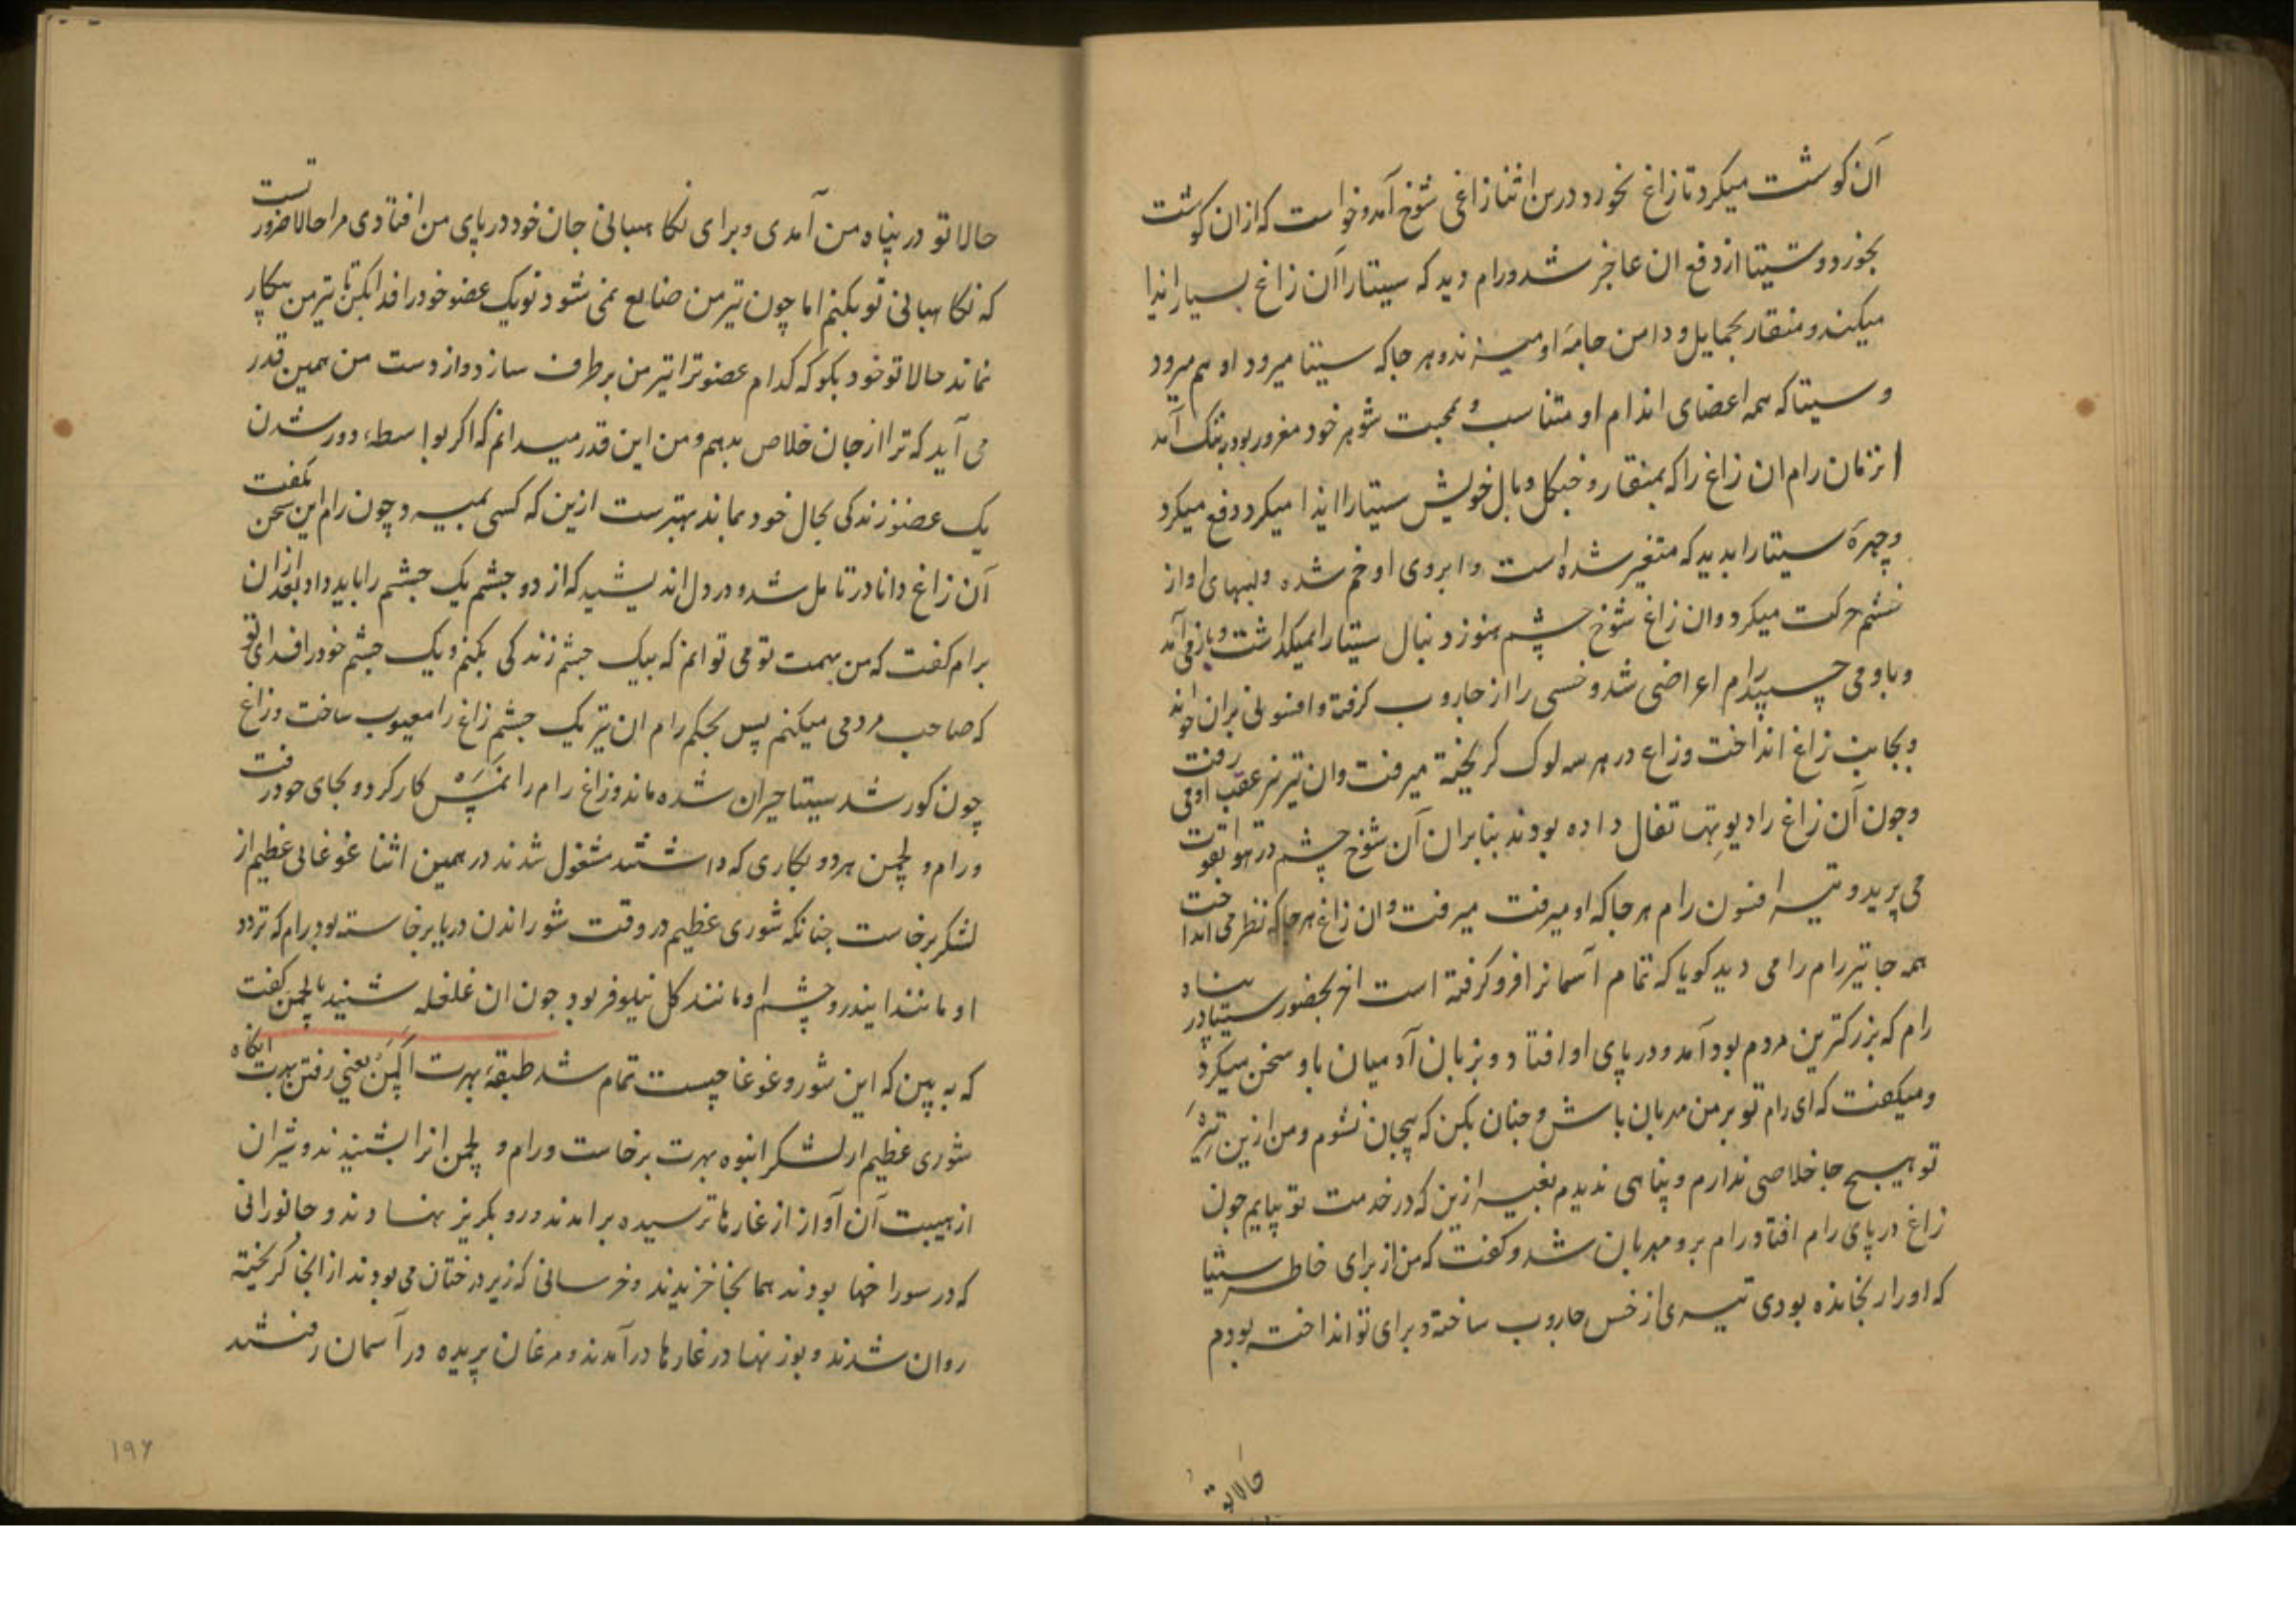 آن کوشت میکرد تا زاغ نخورد درین اثنا زاغی شوخ آمد و خواست که ازان کوشت
بخورد و سیتا از دفع ان عاجز شد و رام دید که سیتا را آن زاغ بسیار ایذا
میکند و منقار بحمایل و دامن جامهٔ او میزند و هر جا که سیتا میرود او هم میرود
و سیتا که همه اعضای اندام او متناسب و بمحبت شوهر خود مغرور بود بتنک آمد
انزمان رام ان زاغ را که بمنقار و چنکل و بال خویش سیتا را ایذا میکرد دفع میکرد
و چهرهٔ سیتا را بدید که متغیر شده است و ابروی او خم شده و لبهای او از
خشم حرکت میکرد وان زاغ شوخ چشم هنوز دنبال سیتا را نمیکذاشت و باز می آمد
و باو می چسپید رام اعراضی شد و خسی را از جاروب کرفته و افسونی بران خواند
و بجانب زاغ انداخت و زاغ در هر سه لوک کریخته میرفت وان تیر نیز عقب او می رفت
و چون آن زاغ را دیوتها تفال داده بودند بنابران آن شوخ چشم در هوا بقوت
می پرید و تیر افسون رام هر جا که او میرفت میرفت و ان زاغ هر جا که نظر می انداخت
همه جا تیر رام را می دید کویا که تمام آسمانرا فرو کرفته است اخر بحضور سیتا در پناه
رام که بزرکترین مردم بود آمد و در پای او افتاد و بزبان آدمیان باو سخن میکرد
و میکفت که ای رام تو بر من مهربان باش و چنان بکن که بیجان نشوم و من ازین تیر
تو هیچ جا خلاصی ندارم و پناهی ندیدم بغیر ازین که در خدمت تو بیایم چون
زاغ در پای رام افتاد رام برو مهربان شد و کفت که من از برای خاطر سیتا
که او را رنجانده بودی تیری از خس جاروب ساخته و برای تو انداخته بودم
حالا تو
حالا تو در پناه من آمدی و برای نکاهبانی جان خود در پای من افتادی مرا حالا ضرورتست
که نکاهبانی تو بکنم اما چون تیر من ضایع نمی شود تو یک عضو خود را فدا بکن تا تیر من بیکار
نماند حالا تو خود بکو که کدام عضو ترا تیر من برطرف سازد و از دست من همین قدر
می آید که ترا از جان خلاص بدهم و من این قدر میدانم که اکر بواسطهٔ دور شدن
یک عضو زندکی بحال خود بماند بهترست ازین که کسی بمیرد و چون رام این سخن بکفت
آن زاغ دانا در تامل شد و در دل اندیشید که از دو چشم یک چشم را باید داد بعد ازان
برام کفت که من بهمت تو می توانم که بیک چشم زندکی بکنم و یک چشم خود را فدای تو
که صاحب مردمی میکنم پس بحکم رام ان تیر یک چشم زاغ را معیوب ساخت و زاغ
چون کور شد سیتا حیران شده ماند و زاغ رام را نمسکار کرد و بجای خود رفت
و رام و لچمن هر دو بکاری که داشتند مشغول شدند در همین اثنا غوغائی عظیم از
لشکر برخاست چنانکه شوری عظیم در وقت شوراندن دریا برخاسته بود رام که تردد
او مانند ایندر و چشم او مانند کل نیلوفر بود چون ان غلغله شنید با لچمن کفت
که به بین که این شور و غوغا چیست تمام شد طبقهٔ بهرت اکمن یعنی رفتن بهرت انکاه
شوری عظیم از لشکر انبوه بهرت برخاست و رام و لچمن انرا بشنیدند و شیران
از هیبت آن آواز از غارها ترسیده برامدند و رو بکریز نهادند و جانورانی
که در سوراخها بودند همانجا خزیدند و خرسانی که زیر درختان می بودند از انجا کریخته
روان شدند و بوزنها در غارها درآمدند و مرغان پریده در آسمان رفتند
۱۹۶